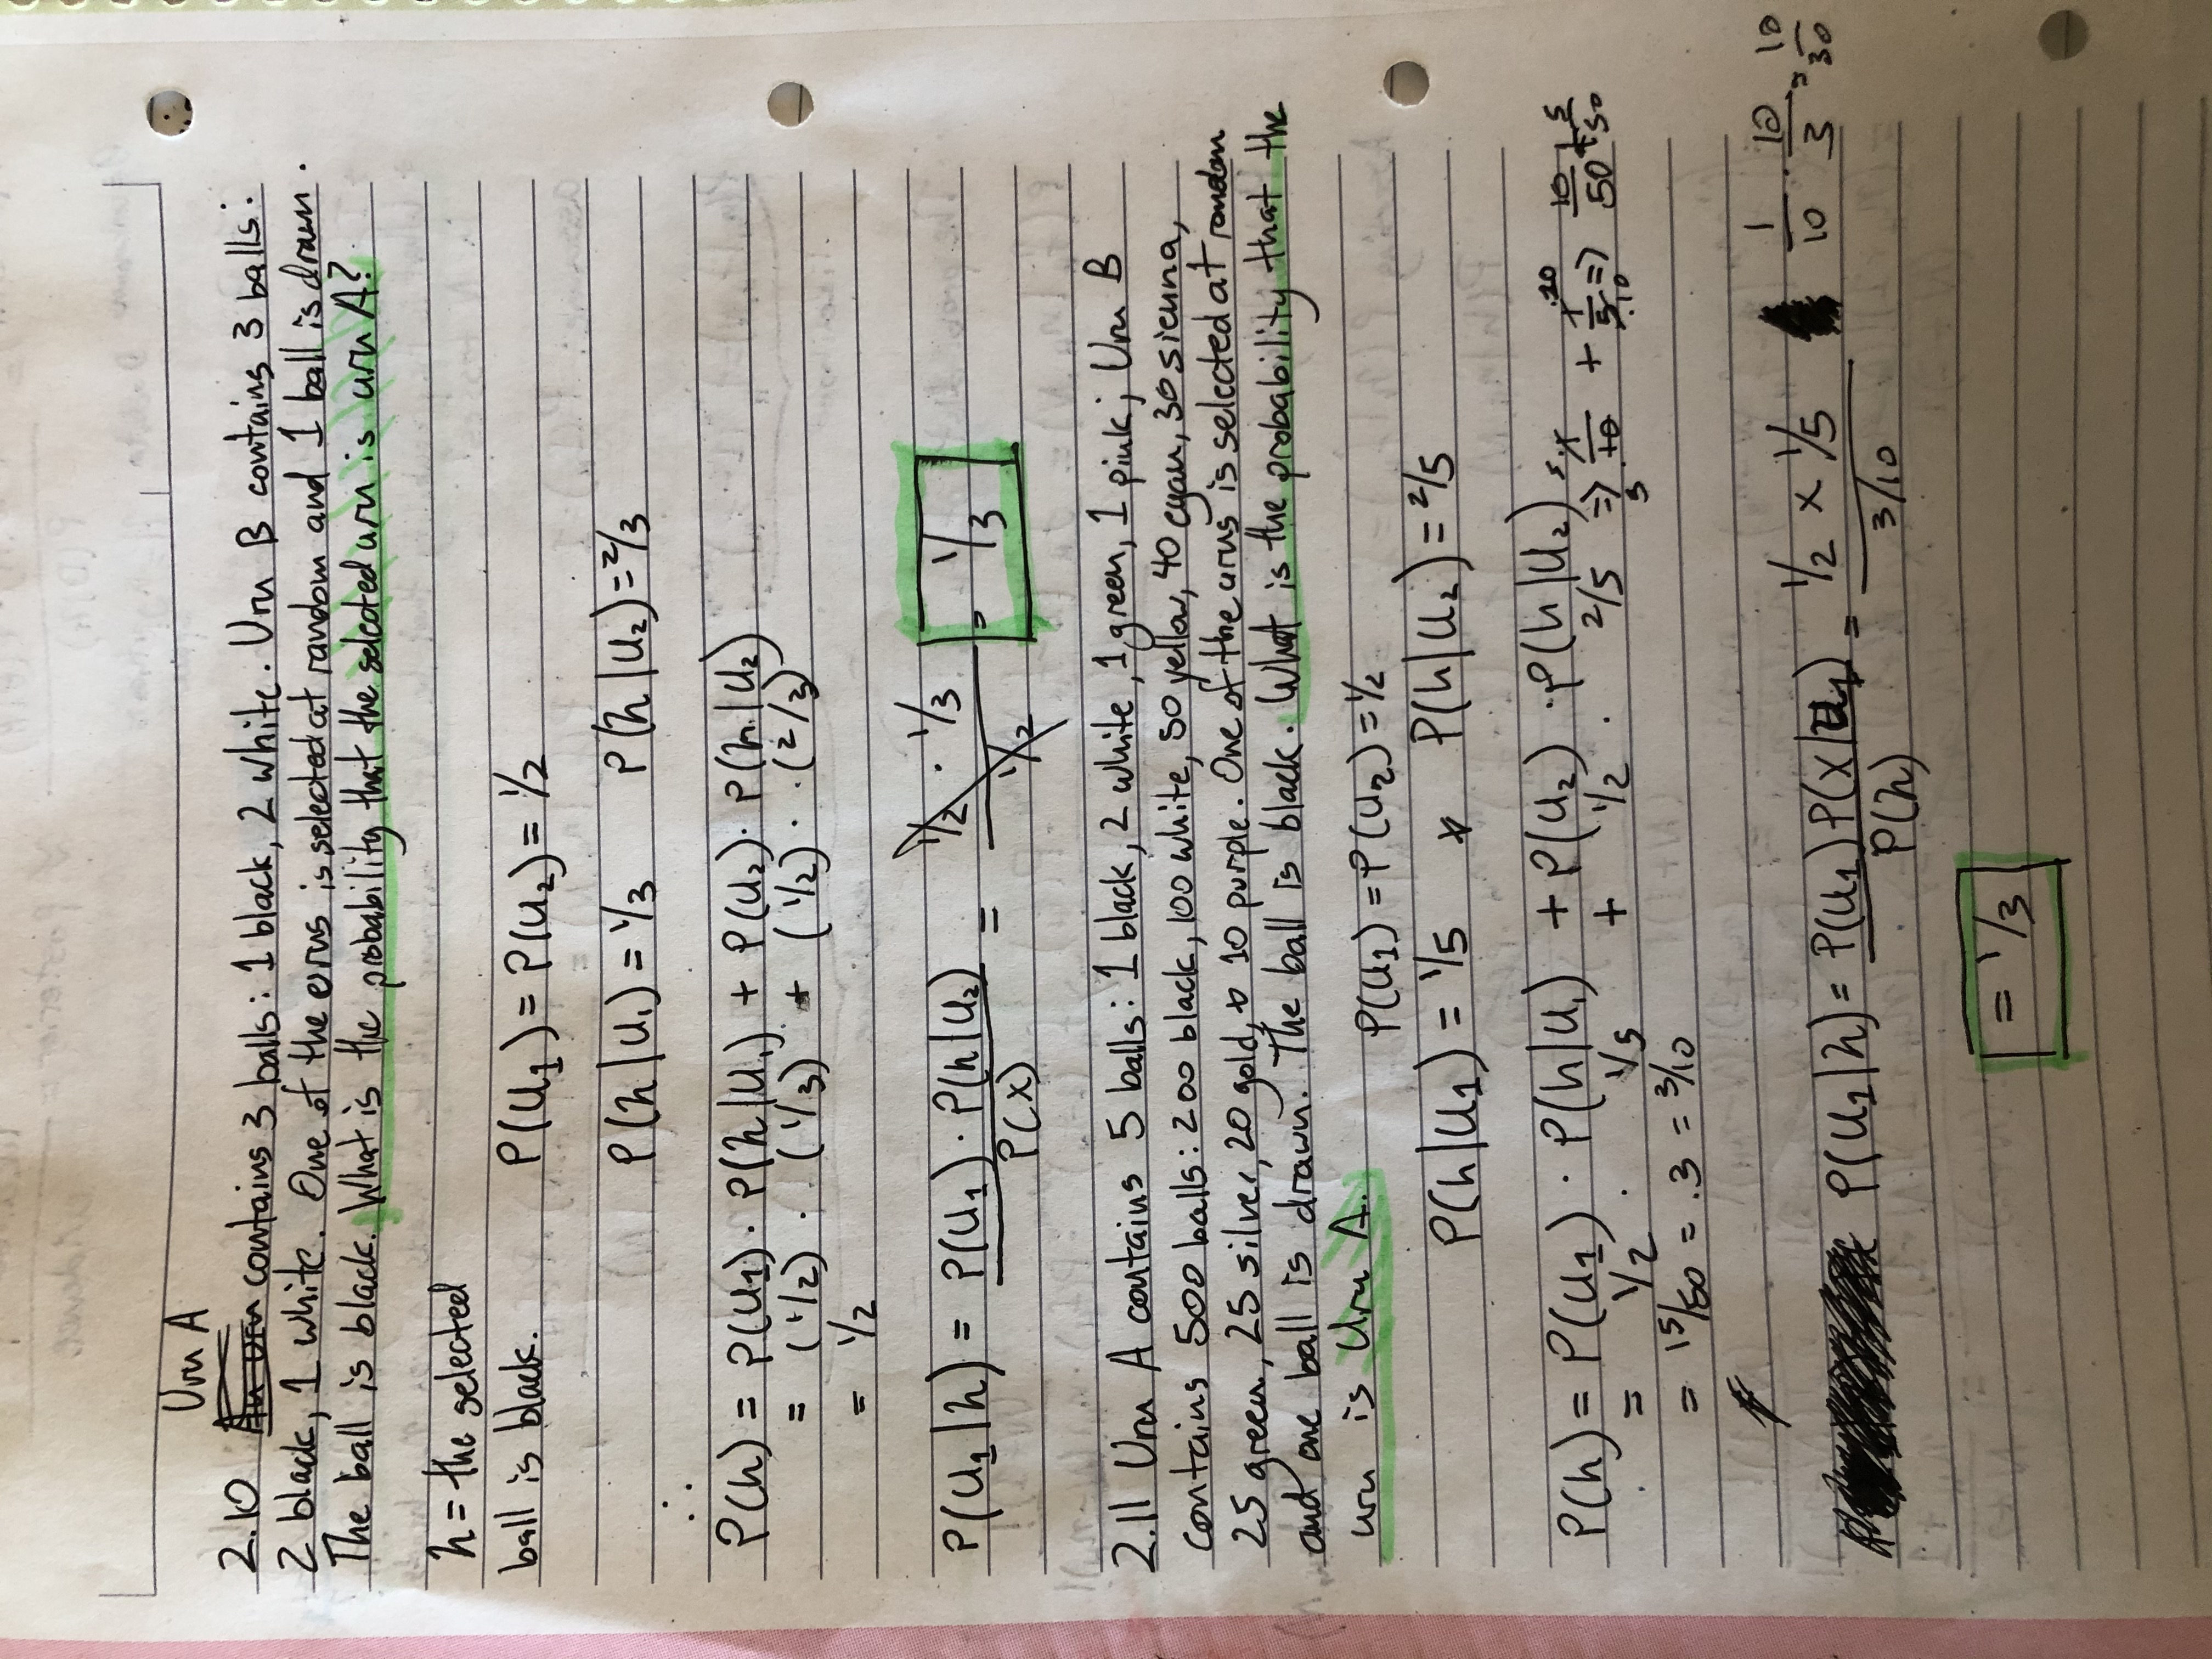 Urn A
2.10 An urn contains 3 balls: 1 black, 2 white. Urn B contains 3 balls:
2 black, 1 white. One of the urns is selected at random and 1 ball is drawn.
The ball is black. What is the probability that the selected urn is urn A?
h = the selected
ball is black. P(U₁) = P(U₂) = 1/2
P(h|U₁) = 1/3 P(h|U₂) = 2/3
∴
P(h) = P(U₁) · P(h|U₁) + P(U₂) · P(h|U₂)
= (1/2) · (1/3) + (1/2) · (2/3)
= 1/2
P(U₁|h) = P(U₁) · P(h|U₂) / P(X) = 1/2 · 1/3 / 1/2 = 1/3
2.11 Urn A contains 5 balls: 1 black, 2 white, 1 green, 1 pink; Urn B
contains 500 balls: 200 black, 100 white, 50 yellow, 40 cyan, 30 sienna,
25 green, 25 silver, 20 gold, & 10 purple. One of the urns is selected at random
and one ball is drawn. The ball is black. What is the probability that the
urn is Urn A.
P(U₁) = P(U₂) = 1/2
P(h|U₁) = 1/5 & P(h|U₂) = 2/5
P(h) = P(U₁) · P(h|U₁) + P(U₂) · P(h|U₂)
= 1/2 · 1/5 + 1/2 · 2/5 ⇒ 5·1/10·5 + 1·10/5·10 ⇒ 10/50 + 5/50
= 15/50 = .3 = 3/10
P(U₁|h) = P(U₁)P(X|U₁) / P(h) = 1/2 x 1/5 / 3/10 1/10 · 10/3 = 10/30
= 1/3